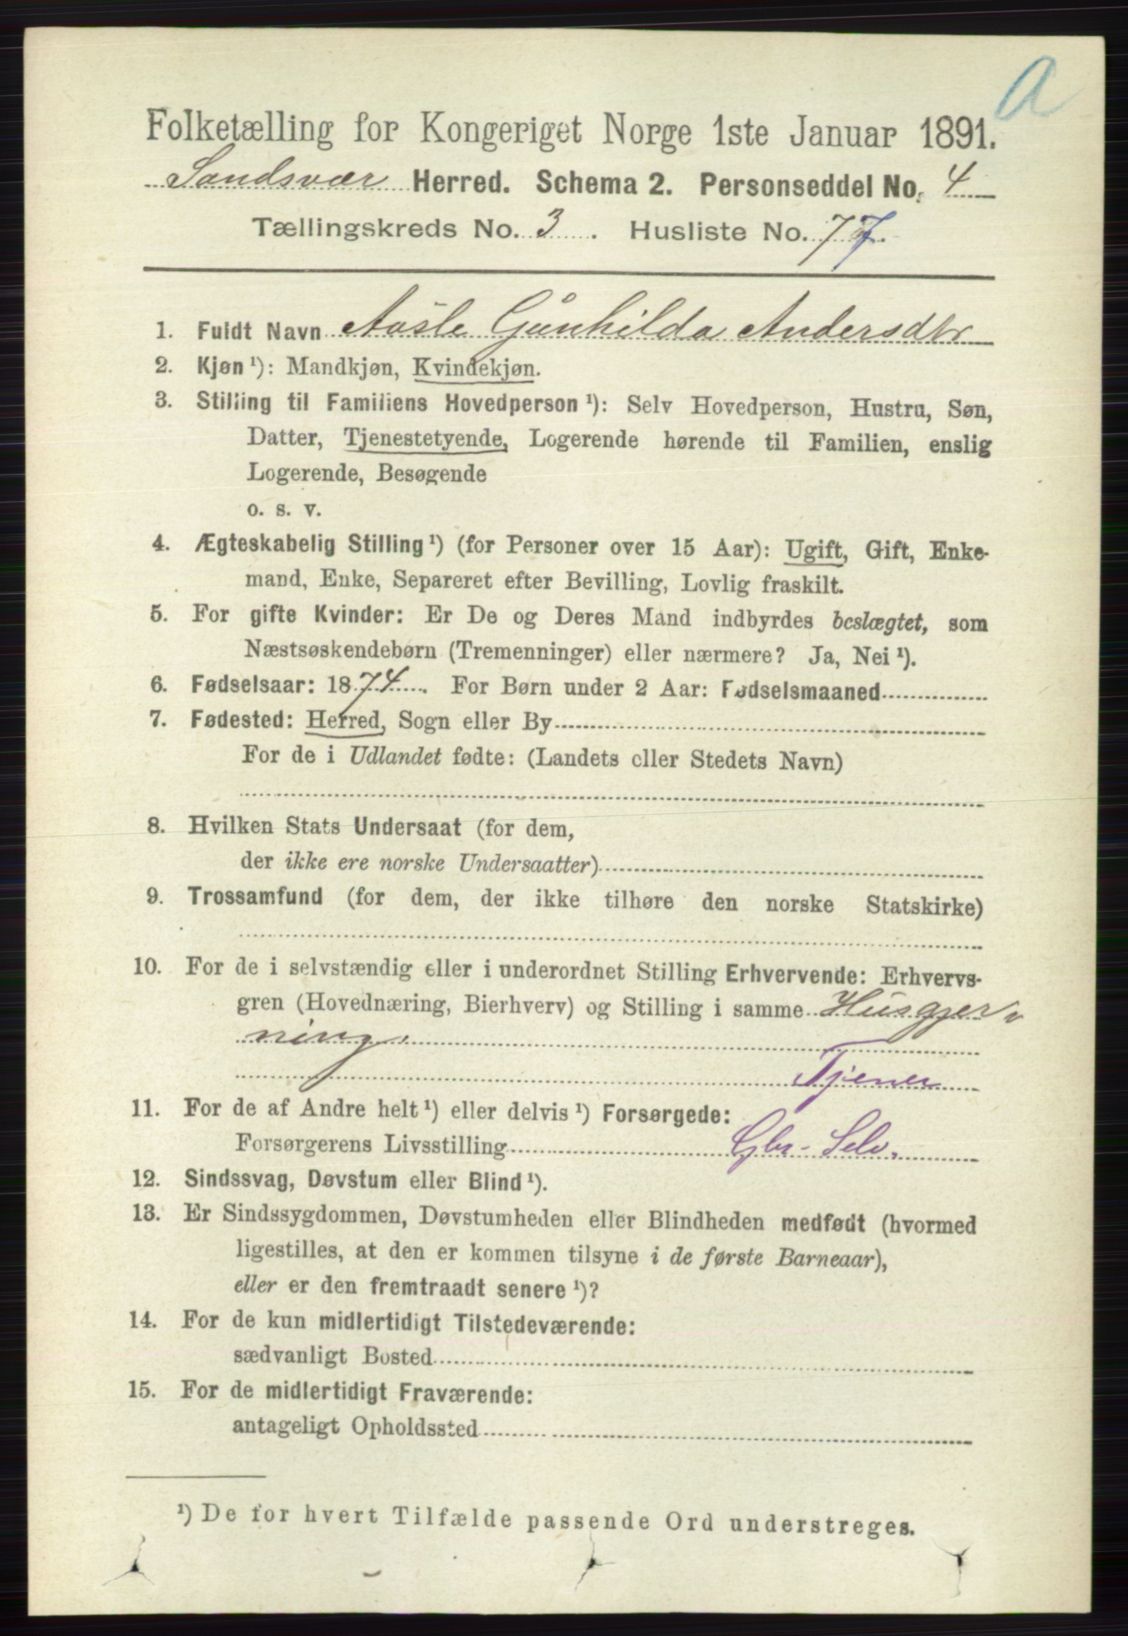 a
Folketælling for Kongeriget Norge 1ste Januar 1891.
Sandsvær Herred. Schema 2. Personseddel No. 4
Tællingskreds No. 3. Husliste No. 77.
1. Fuldt Navn Aasle Gunhilda Andersdtr
2. Kjøn ¹): Mandkjøn, Kvindekjøn.
3. Stilling til Familiens Hovedperson ¹): Selv Hovedperson, Hustru, Søn,
Datter, Tjenestetyende, Logerende hørende til Familien, enslig
Logerende, Besøgende
o. s. v.
4. Ægteskabelig Stilling ¹) (for Personer over 15 Aar): Ugift, Gift, Enke-
mand, Enke, Separeret efter Bevilling, Lovlig fraskilt.
5. For gifte Kvinder: Er De og Deres Mand indbyrdes beslægtet, som
Næstsøskendebørn (Tremenninger) eller nærmere? Ja, Nei ¹).
6. Fødselsaar: 1874. For Børn under 2 Aar: Fødselsmaaned
7. Fødested: Herred, Sogn eller By
For de i Udlandet fødte: (Landets eller Stedets Navn)
8. Hvilken Stats Undersaat (for dem,
der ikke ere norske Undersaatter)
9. Trossamfund (for dem, der ikke tilhøre den norske Statskirke)
10. For de i selvstændig eller i underordnet Stilling Erhvervende: Erhvervs-
gren (Hovednæring, Bierhverv) og Stilling i samme Husgjer-
ning.
Tjener
11. For de af Andre helt ¹) eller delvis ¹) Forsørgede:
Forsørgerens Livsstilling Gbr-Selv.
12. Sindssvag, Døvstum eller Blind ¹).
13. Er Sindssygdommen, Døvstumheden eller Blindheden medfødt (hvormed
ligestilles, at den er kommen tilsyne i de første Barneaar),
eller er den fremtraadt senere ¹)?
14. For de kun midlertidigt Tilstedeværende:
sædvanligt Bosted
15. For de midlertidigt Fraværende:
antageligt Opholdssted
¹) De for hvert Tilfælde passende Ord understreges.